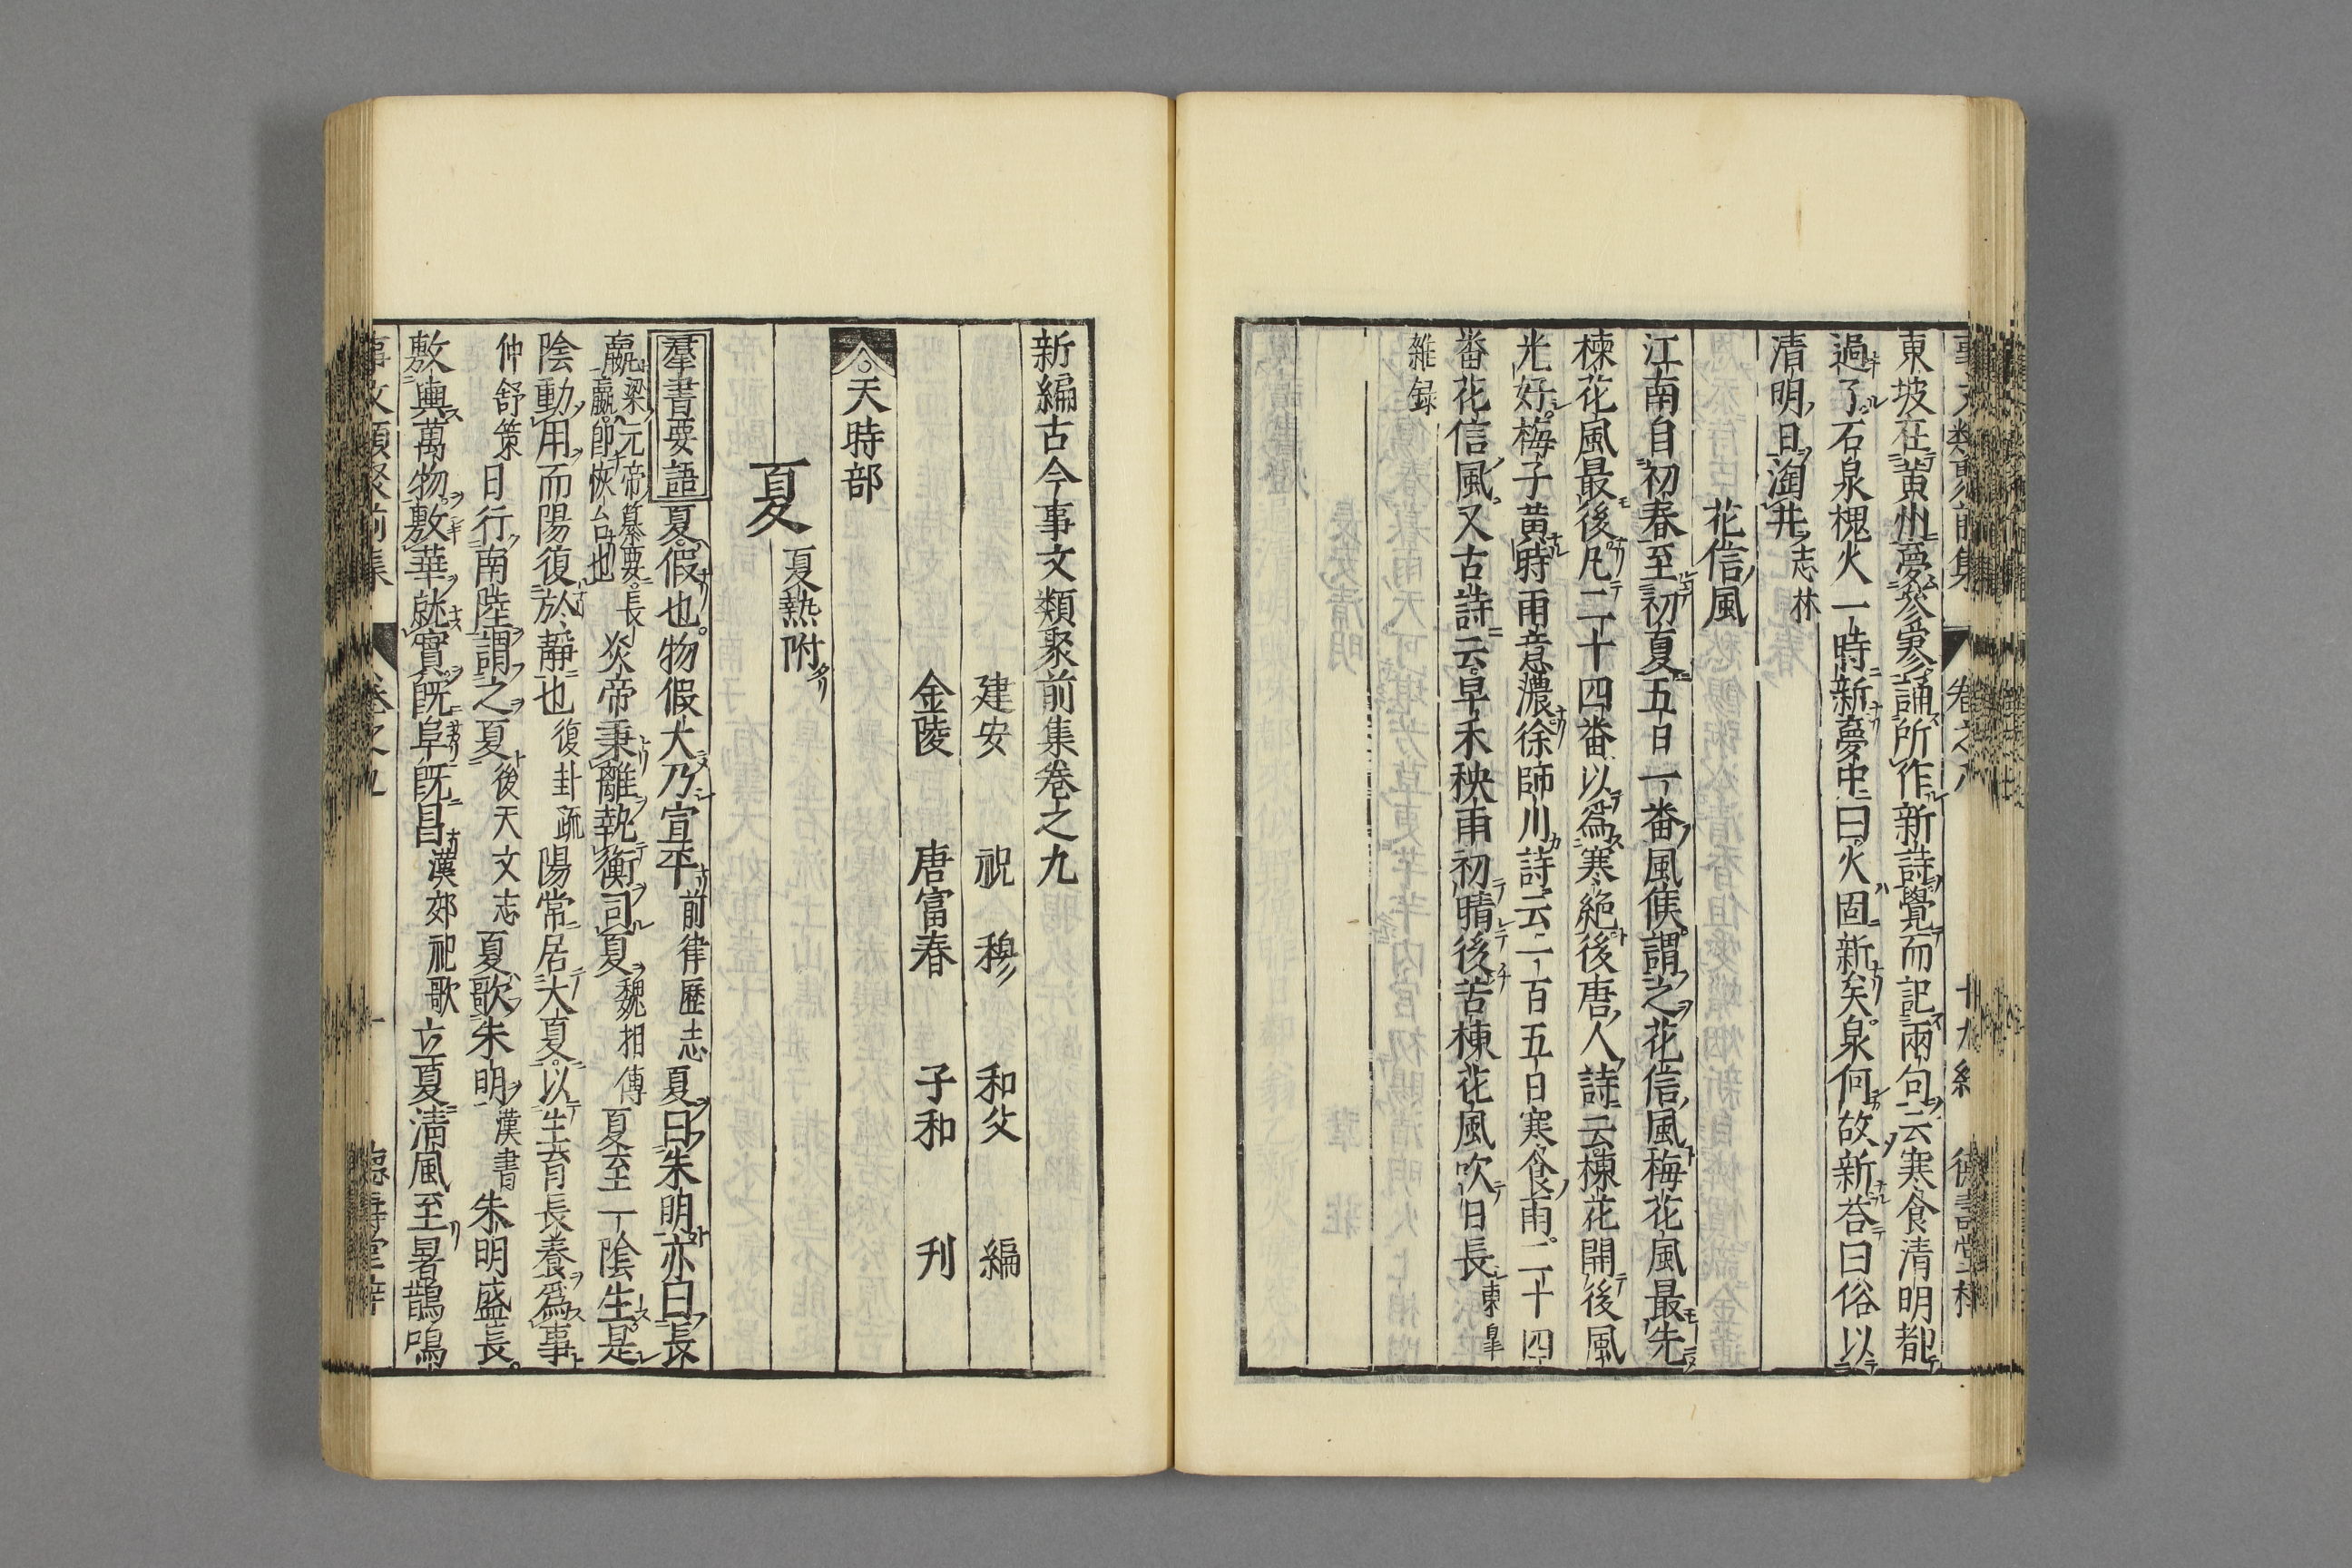 東坡在黄州夢參寥誦所作新詩覺而記兩句云寒食清明都
過了石泉槐火一時新夢中曰火固新矣泉何故新荅曰俗以
清明日淘井志林
花信風
江南自初春至初夏五日一番風候謂之花信風梅花風最先
楝花風最後凡二十四番以爲寒絶後唐人詩云楝花開後風
光好梅子黄時雨意濃徐師川詩云一百五日寒食雨二十四
番花信風又古詩云早禾秧雨初晴後苦楝花風吹日長東皐
雜録
新編古今事文類聚前集卷之九
建安 祝 穆 和父 編
金陵 唐富春 子和 刊
天時部
夏 夏熱附
羣書要語 夏假也物假大乃宣平前律歷志夏曰朱明亦曰長
嬴梁元帝纂要長嬴即恢台也炎帝秉離執衡司夏魏相傳夏至一陰生是
陰動用而陽復於靜也復卦疏陽常居大夏以生育長養爲事
仲舒策日行南陸謂之夏後天文志夏歌朱明漢書朱明盛長
敷與萬物敷華就實旣阜旣昌漢郊祀歌立夏清風至暑鵲鳴